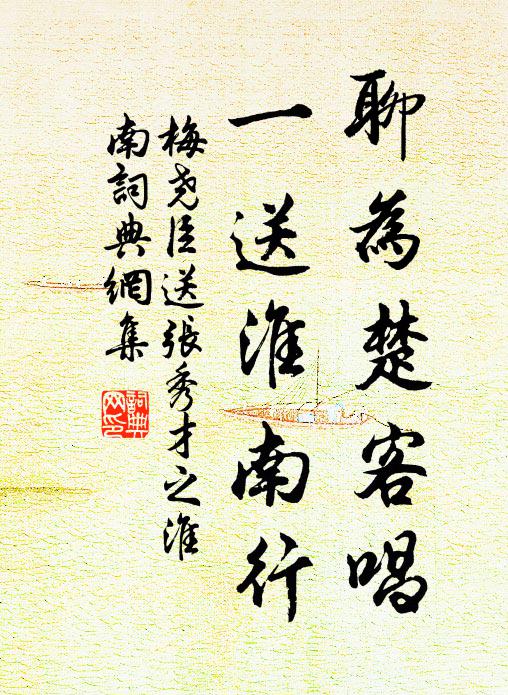 聊為楚客唱
一送淮南行
梅堯臣送張秀才之淮
南詞典網集
詞典网印